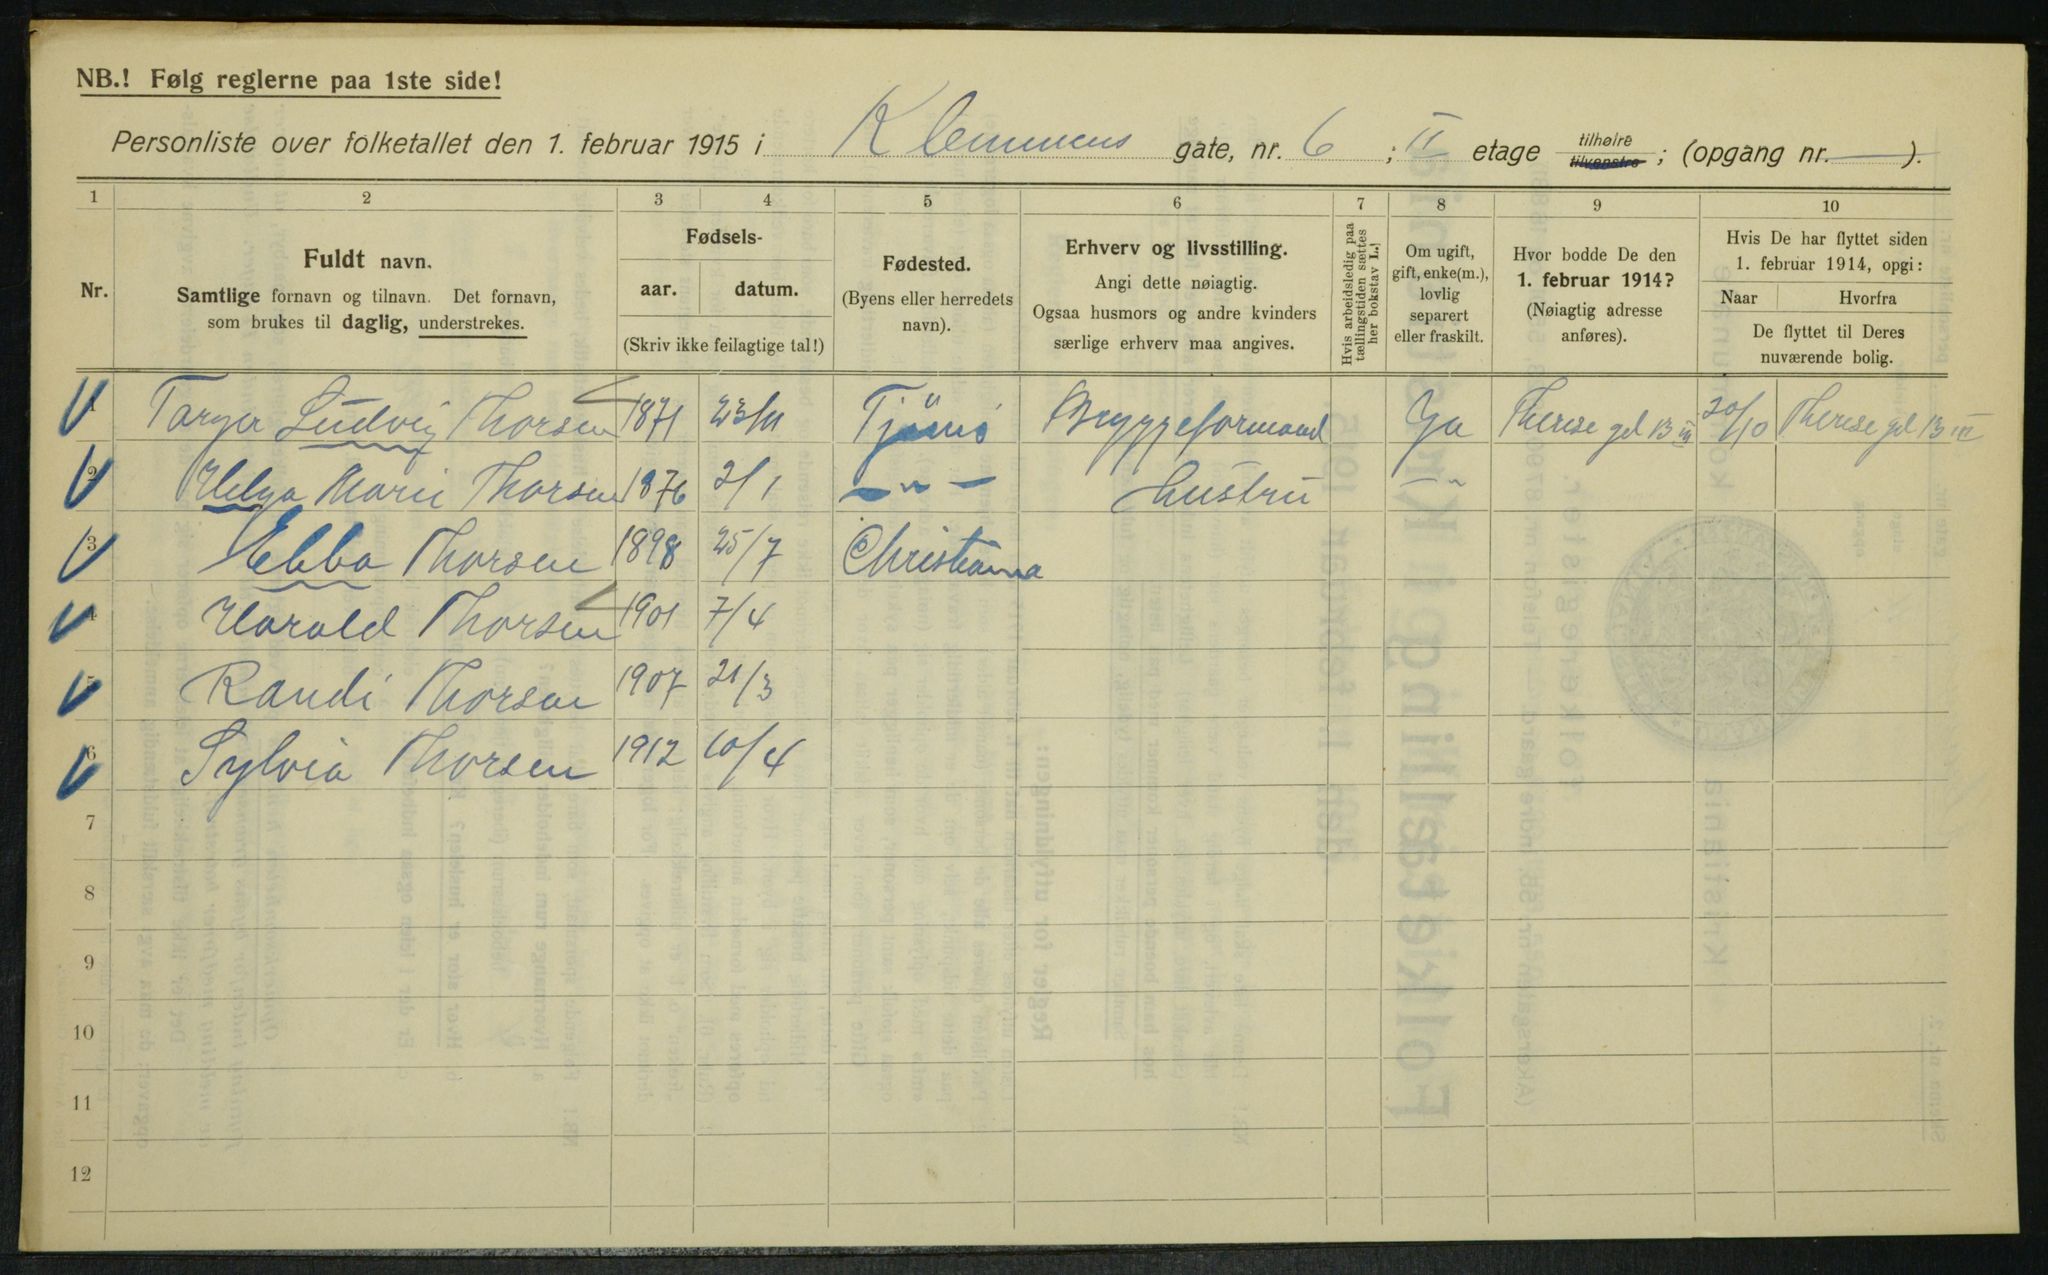 NB.! Følg reglerne paa 1ste side!
Personliste over folketallet den 1. februar 1915 i Klemmens gate, nr. 6 ; II etage tilhøire tilvenstre ; (opgang nr. — ).
1 2 3 4 5 6 7 8 9 10
Nr.
Fuldt navn.
Samtlige fornavn og tilnavn. Det fornavn,
som brukes til daglig, understrekes.
Fødsels-
aar. datum.
(Skriv ikke feilagtige tal!)
Fødested.
(Byens eller herredets
navn).
Erhverv og livsstilling.
Angi dette nøiagtig.
Ogsaa husmors og andre kvinders
særlige erhverv maa angives.
Hvis arbeidsledig paa
tællingstiden sættes
her bokstav L.!
Om ugift,
gift, enke(m.),
lovlig
separert
eller fraskilt.
Hvor bodde De den
1. februar 1914?
(Nøiagtig adresse
anføres).
Hvis De har flyttet siden
1. februar 1914, opgi:
Naar Hvorfra
De flyttet til Deres
nuværende bolig.
1 Torger Ludvig Thorsen 1871 23/11 Tjømø Bryggeformand Ja Therese gd 13 III 20/10 Therese gd 13 III
2 Helga Marie Thorsen 1876 2/1 — " — hustru — " 
3 Ebba Thorsen 1898 25/7 Christiania
4 Harald Thorsen 1901 7/4
5 Randi Thorsen 1907 21/3
6 Sylvia Thorsen 1912 10/4
7
8
9
10
11
12